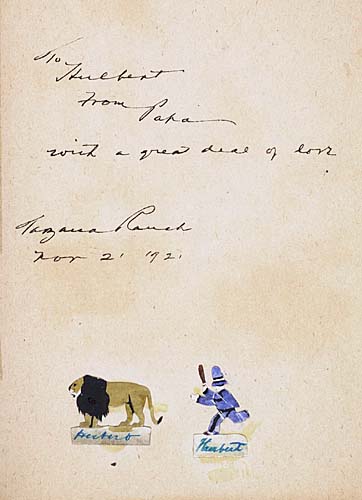 To
Hulbert
From
Papa
with a great deal of love
Tarzana Ranch
Nov 2. '21.
Herbert